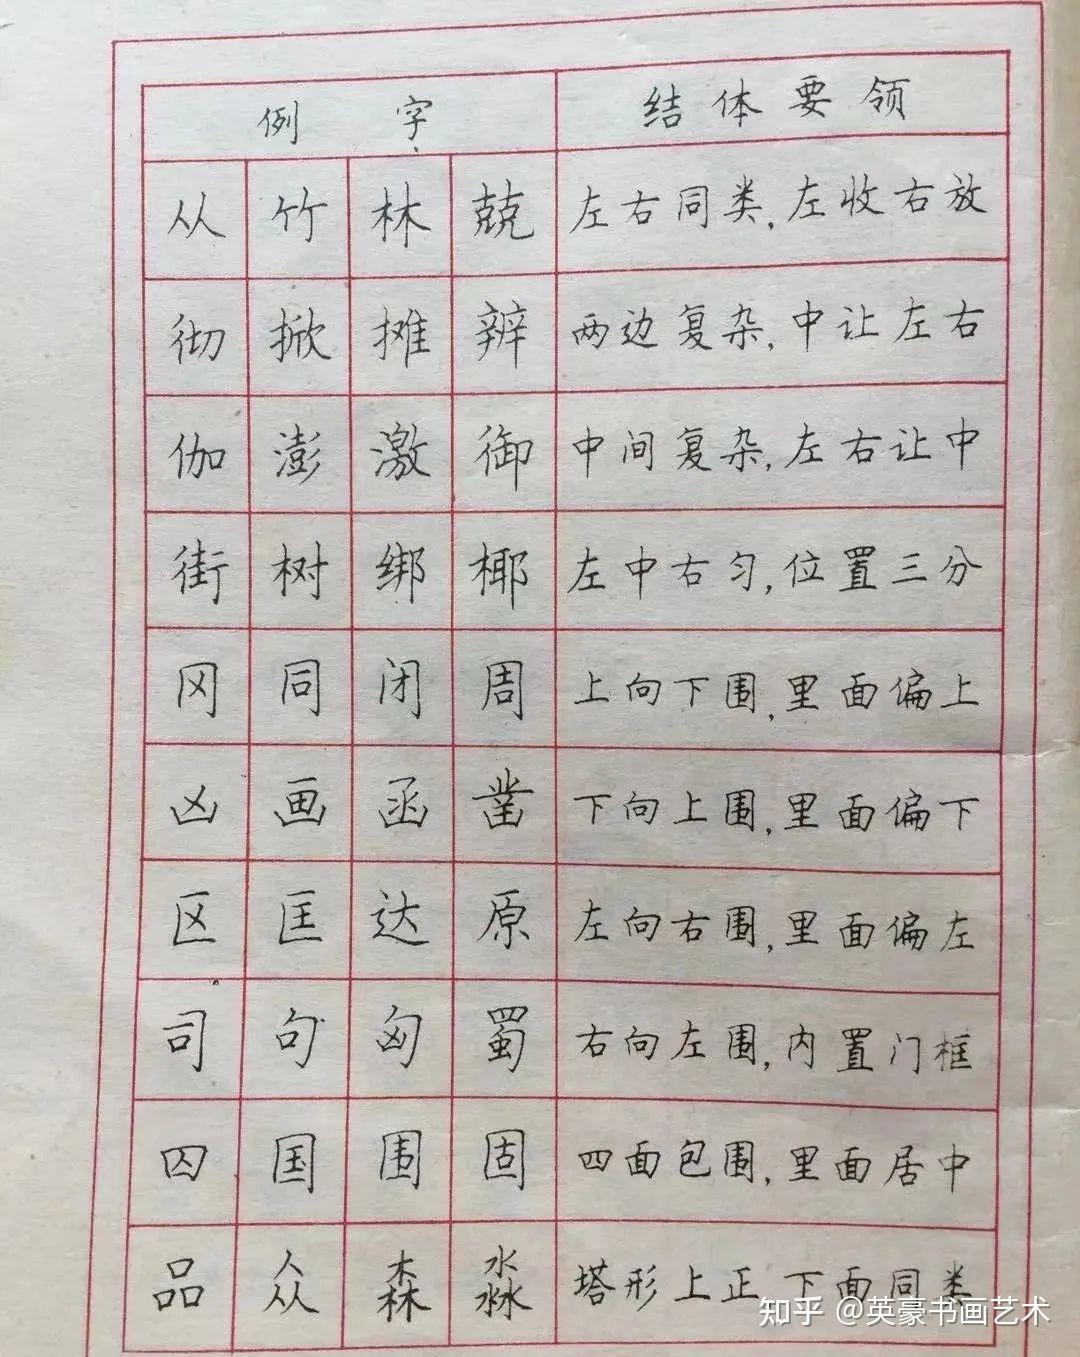 例 字 结体要领
从 竹 林 兢 左右同类,左收右放
彻 掀 摊 辨 两边复杂,中让左右
伽 澎 激 御 中间复杂,左右让中
街 树 绑 椰 左中右匀,位置三分
冈 同 闭 周 上向下围,里面偏上
凶 画 函 凿 下向上围,里面偏下
区 匡 达 原 左向右围,里面偏左
司 句 匈 蜀 右向左围,内置门框
囚 国 围 固 四面包围,里面居中
品 众 森 淼 塔形上正,下面同类
知乎 @英豪书画艺术